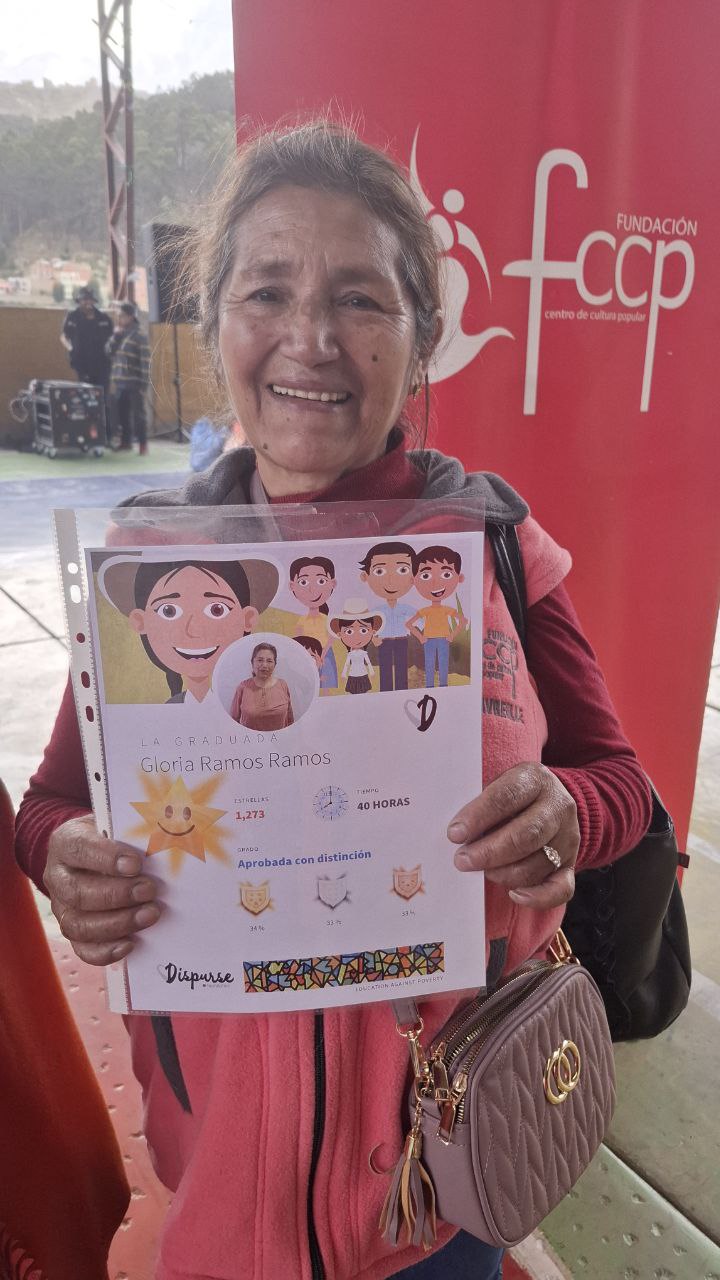 FUNDACIÓN
fccp
centro de cultura popular
D
LA GRADUADA
Gloria Ramos Ramos
ESTRELLAS
1,273
TIEMPO
40 HORAS
GRADO
Aprobada con distinción
34 %
33 %
33 %
Dispurse
EDUCATION AGAINST POVERTY